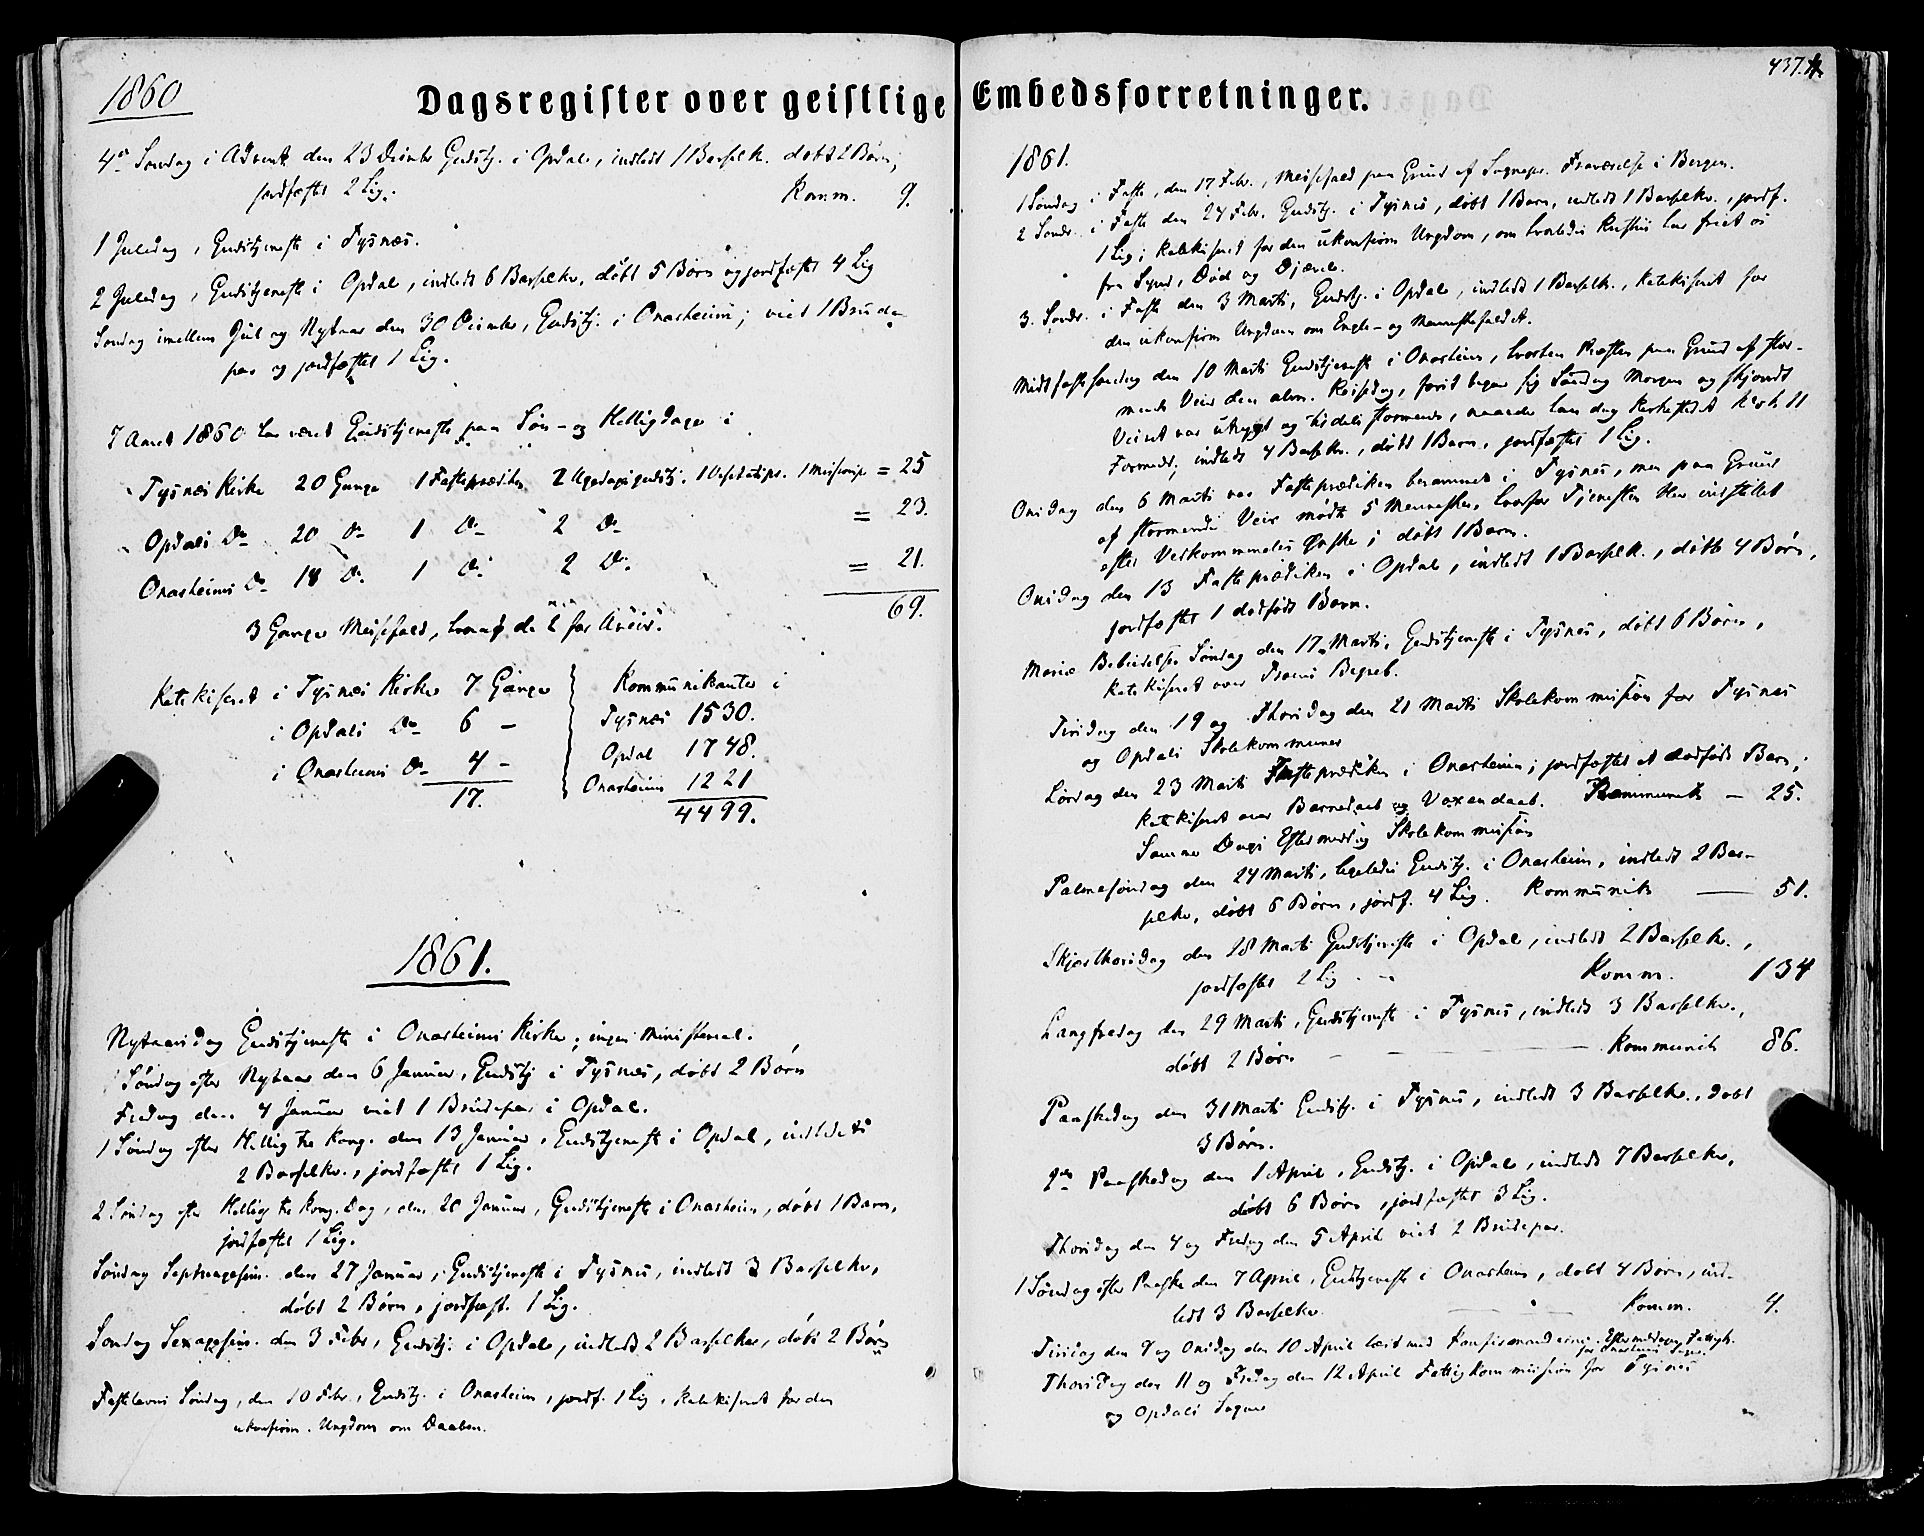 1860
Dagsregister over geistlige Embedsforretninger.
437.
4de Søndag i Advent den 23 Decembr Gudstj. i Opdal, indledt 1 Barselk. døbt 2 Børn;
jordfæstet 2 Lig. Komm. 9.
1 Juledag, Gudstjeneste i Tysnæs.
2 Juledag, Gudstjeneste i Opdal, indledt 6 Barselkv. døbt 5 Børn og jordfæstet 4 Lig
Søndag imellem Jul og Nytaar den 30 Decembr, Gudstj. i Onarheim; viet 1 Brude-
par og jordfæstet 1 Lig.
I Aaret 1860 har været Gudstjeneste paa Søn- og Helligdage i
Tysnæs Kirke 20 Gange 1 Fasteprædiken 2 Ugedagsgudstj. 1 1 = 25
Opdals Do 20 Do 1 Do 2 Do = 23.
Onarheims Do 18 Do 1 Do 2 Do = 21.
69.
3 Gange Messefald, hvoraf de 2 for Uveir.
Katekiseret i Tysnæs Kirke 7 Gange Kommunikanter i
i Opdals Do 6 - Tysnæs 1530.
i Onarheims Do 4 - Opdal 1748.
17. Onarheims 1221
4499.
1861.
Nytaarsdag Gudstjeneste i Onarheims Kirke; ingen Ministerial.
Søndag efter Nytaar den 6 Januar, Gudstj i Tysnæs, døbt 2 Børn
Fredag den 4 Januar viet 1 Brudepar i Opdal.
1 Søndag efter Hellig tre Kong. den 13 Januar, Gudstjeneste i Opdal, indledt
2 Barselkv., jordfæstet 1 Lig.
2 Søndag efter Hellig tre Kong. Dag, den 20 Januar, Gudstjeneste i Onarheim, døbt 1 Barn,
jordfæstet 1 Lig.
Søndag Septuagesim. den 27 Januar, Gudstjeneste i Tysnæs, indledt 3 Barselkv,
døbt 2 Børn, jordfæst. 1 Lig.
Søndag Sexagesim. den 3 Febr, Gudstj. i Opdal, indledt 2 Barselkv, døbt 2 Børn
Fastelavns Søndag, den 10 Febr., Gudstj. i Onarheim, jordf. 1 Lig, Katekiseret for den
ukonfirm. Ungdom om Daaben.
1861.
1 Søndag i Faste, den 17 Febr., Messefald paa Grund af Sognepr. Fraværelse i Bergen.
2 Sønd. i Faste den 24 Febr. Gudstj. i Tysnes, døbt 1 Barn, indledt 1 Barselkv., jordf.
1 Lig; Katekiseret for den ukonfirm Ungdom, om hvorledes Kristus har friet os
fra Synd, Død og Djævel.
3. Sønd. i Faste den 3 Marti, Gudstj. i Opdal, indledt 1 Barselk., Katekiseret for
den ukonfirm Ungdom om Engle- og Menneskefaldet.
Midtfastesøndag den 10 Marti Gudstjeneste i Onarheim, hvorhen Præsten paa Grund af stor-
mende Veir den alm. Reisedag, først begav sig Søndag Morgen og skjøndt
Veiret var utrygt og tildels stormende, naaede han dog Kirkestedet Kl. 11
Formidd; indledt 4 Barselkv., døbt 1 Barn, jordfæstet 1 Lig.
Onsdag den 6 Marti var Fasteprædiken berammet i Tysnes, men paa Grund
af stormende Veir mødte 5 Mennesker, hvorfor Tjenesten blev indstillet
efter Vedkommendes Ønske; døbt 1 Barn.
Onsdag den 13 Fasteprædiken i Opdal, indledt 1 Barselk., døbt 4 Børn,
jordfæstet 1 dødfødt Barn.
Mariæ Bebudelses Søndag den 17. Marti, Gudstjeneste i Tysnes, døbt 6 Børn,
Katekiseret over Troens Begreb.
Tirsdag den 19 og Thorsdag den 21 Marti Skolekommission for Tysnes
og Opdals Skolekommuner
Lørdag den 23 Marti Fasteprædiken i Onarheim; jordfæstet et dødfødt Barn;
Katekiseret over Barnedaab og Voxendaab. Kommunik - 25.
Samme Dags Eftermiddag Skolekommission
Palmesøndag den 24 Marti, ligeledes Gudstj. i Onarheim, indledt 2 Bar-
selkv, døbt 6 Børn, jordf. 4 Lig. Kommunik - 51.
Skjærthorsdag den 28 Marti Gudstjeneste i Opdal, indledt 2 Barselkv.,
jordfæstet 2 Lig - - Komm. 134
Langfredag den 29 Marti, Gudstjeneste i Tysnes, indledt 3 Barselkv.,
døbt 2 Børn - Kommunik 86.
Paaskedag den 31 Marti Gudstj. i Tysnes, indledt 3 Barselkv., døbt
3 Børn.
2den Paaskedag den 1 April, Gudstj. i Opdal, indledt 7 Barselkv,
døbt 6 Børn, jordfæstet 3 Lig.
Thorsdag den 4 og Fredag den 5 April viet 2 Brudepar.
1 Søndag efter Paaske den 7 April, Gudstjeneste i Onarheim, døbt 4 Børn, ind-
ledt 3 Barselkv. - Komm. 4.
Tirsdag den 9 og Onsdag den 10 April læst med Konfirmanderne. Eftermiddagen Fattigk.
for Onarheims Sogn.
Thorsdag den 11 og Fredag den 12 April Fattigkommission for Tysnes
og Opdals Sogne